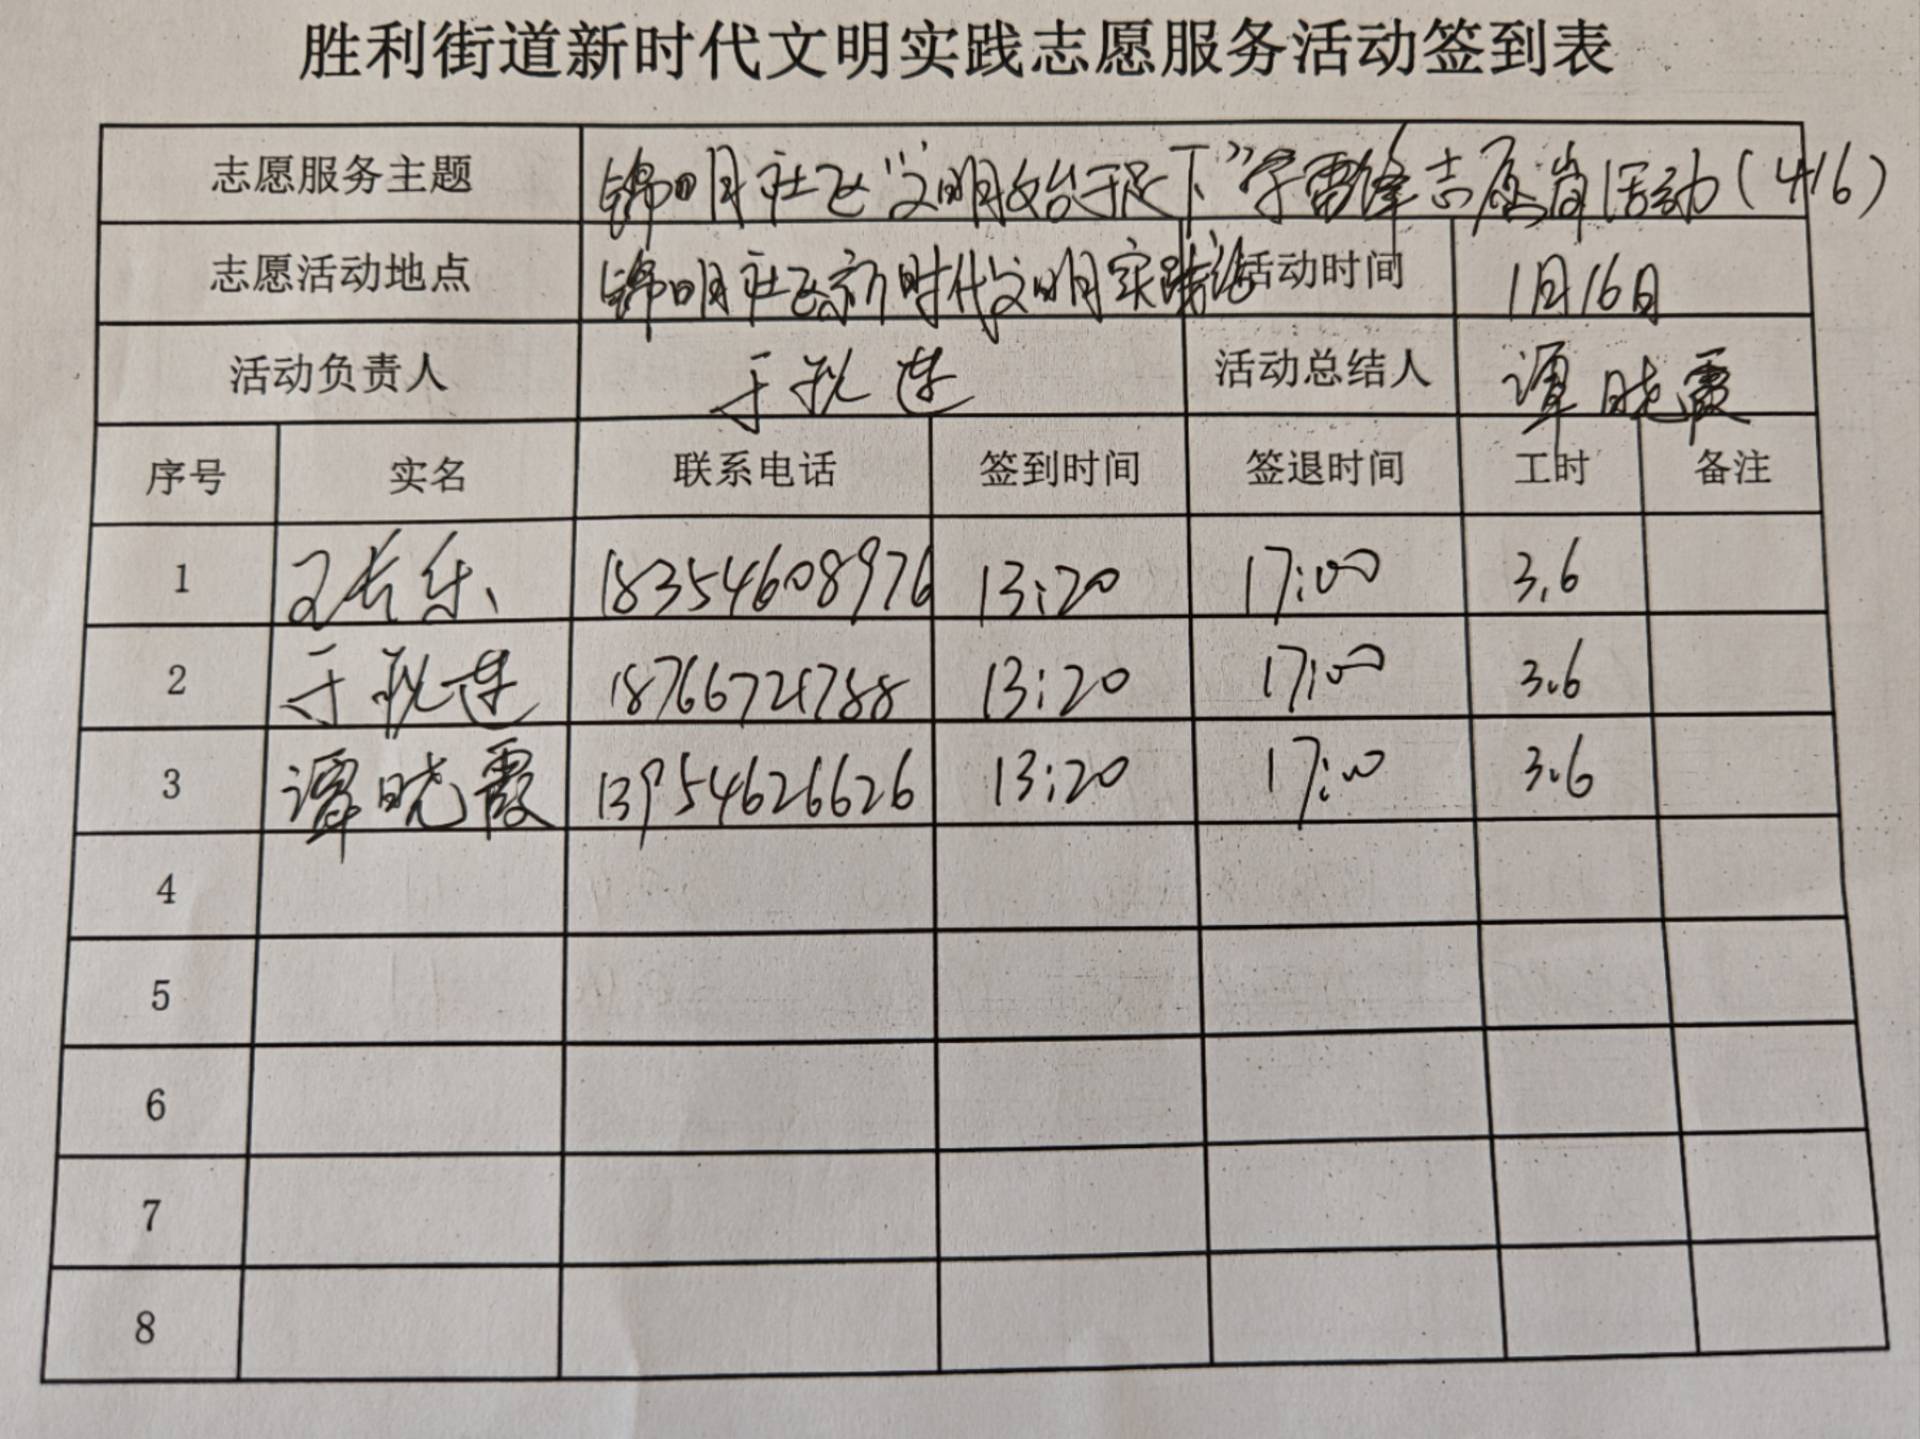 胜利街道新时代文明实践志愿服务活动签到表
志愿服务主题 锦明社区“文明始于足下”学雷锋志愿岗活动(416)
志愿活动地点 锦明社区新时代文明实践站 活动时间 1月16日
活动负责人 于秋莲 活动总结人 谭晓霞
序号 实名 联系电话 签到时间 签退时间 工时 备注
1 王长乐 18354608976 13:20 17:00 3.6
2 于秋莲 18766721788 13:20 17:00 3.6
3 谭晓霞 13954626626 13:20 17:00 3.6
4
5
6
7
8